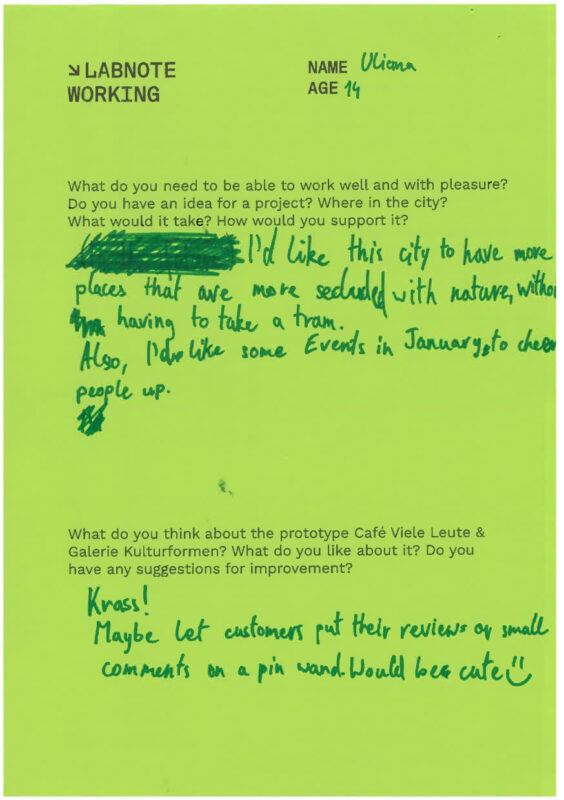 ↘ LABNOTE
WORKING
NAME Uliana
AGE 14
What do you need to be able to work well and with pleasure?
Do you have an idea for a project? Where in the city?
What would it take? How would you support it?
I'd like this city to have more
places that are more secluded with nature, witho
having to take a tram.
Also, I'd like some Events in January, to cheer
people up.
What do you think about the prototype Café Viele Leute &
Galerie Kulturformen? What do you like about it? Do you
have any suggestions for improvement?
Krass!
Maybe let customers put their reviews or small
comments on a pin wand. Would be cute